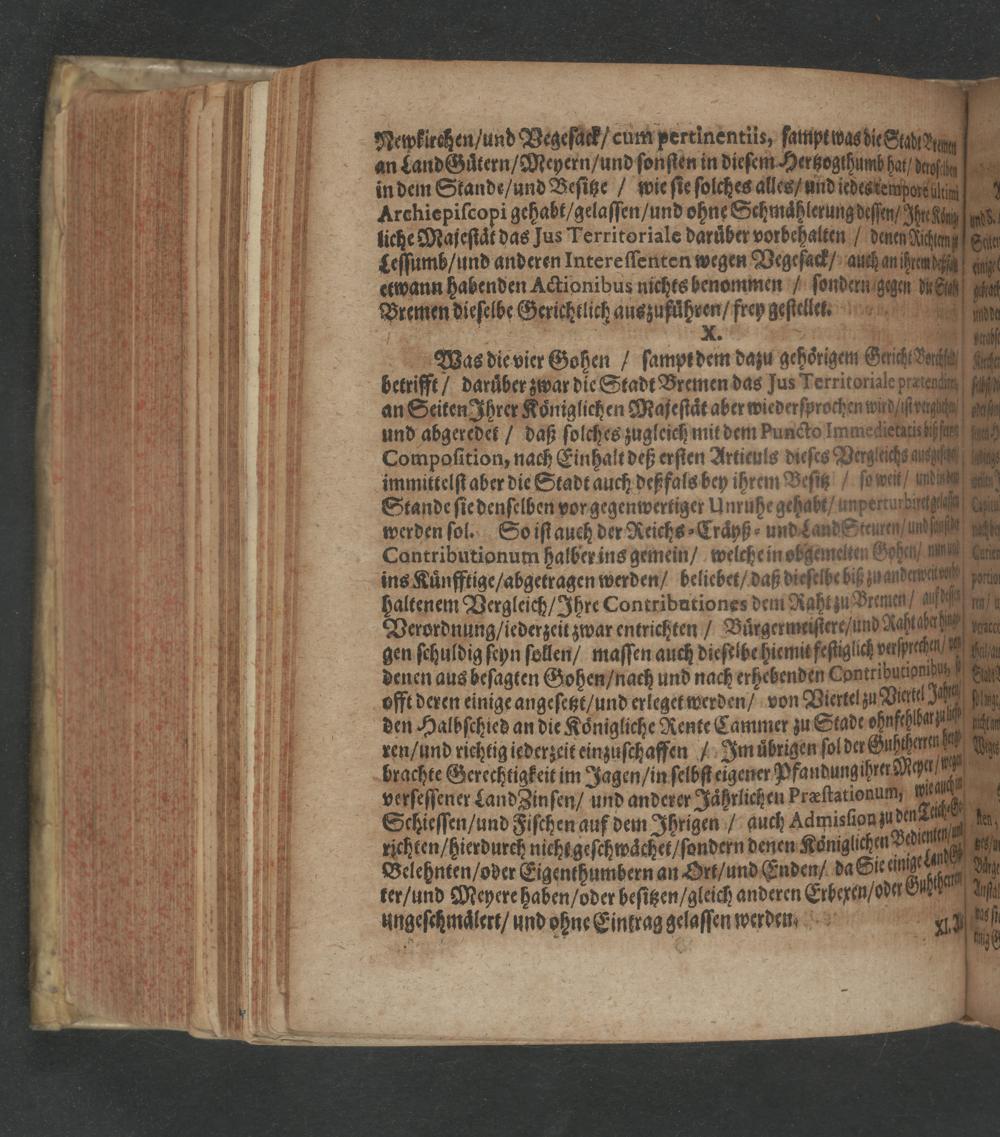 Newkirchen/und Vegesack/cum pertinentiis, sampt was die Stadt Bremen
an LandGütern/Meyern/und sonsten in diesem Hertzogthumb hat/deroselben
in dem Stande/und Besitze / wie sie solches alles/ und iedes tempore ultimi
Archiepiscopi gehabt/gelassen/und ohne Schmählerung dessen/Ihre König-
liche Majestät das Jus Territoriale darüber vorbehalten / denen Richtern zu
Lessumb/und anderen Interessenten wegen Vegesack/ auch an ihrem deßfals
etwann habenden Actionibus nichts benommen / sondern gegen die Stadt
Bremen dieselbe Gerichtlich auszuführen/frey gestellet.
X.
Was die vier Gohen / sampt dem dazu gehörigem Gericht Borchfeld/
betrifft / darüber zwar die Stadt Bremen das Jus Territoriale prætendiret,
an Seiten Ihrer Königlichen Majestät aber wiedersprochen wird/ist verglichen/
und abgeredet / daß solches zugleich mit dem Puncto Immedietatis biß ferner
Composition, nach Einhalt deß ersten Articuls dieses Vergleichs ausgesetzet/
immittelst aber die Stadt auch deßfals bey ihrem Besitz / so weit / und in dem
Stande sie denselben vor gegenwertiger Unruhe gehabt/unperturbiret gelassen
werden sol. So ist auch der Reichs-Cräyß- und LandSteuren/und sonst der
Contributionum halber ins gemein/ welche in obgemelten Gohen/ nun und
ins Künfftige/abgetragen werden/ beliebet/daß dieselbe biß zu anderweit vorbe-
haltenem Vergleich/Ihre Contributiones dem Raht zu Bremen / auf dessen
Verordnung/iederzeit zwar entrichten / Bürgermeistere/und Raht aber hinge-
gen schuldig seyn sollen/ massen auch dieselbe hiemit festiglich versprechen/ von
denen aus besagten Gohen/nach und nach erhebenden Contributionibus, so
offt deren einige angesetzt/und erleget werden/ von Viertel zu Viertel Jahren/
den Halbschied an die Königliche Rente Cammer zu Stade ohnfehlbar zu liefe-
ren/und richtig iederzeit einzuschaffen / Im übrigen sol der Guhtherren herge-
brachte Gerechtigkeit im Jagen/in selbst eigener Pfandung ihrer Meyer/wegen
versessener LandZinsen/ und anderer Jährlichen Præstationum, wie auch im
Schiessen/und Fischen auf dem Ihrigen / auch Admission zu den Teich-Ge-
richten/hierdurch nicht geschwächet/sondern denen Königlichen Bedienten/und
Belehnten/oder Eigenthumbern an Ort/und Enden/ da Sie einige LandGü-
ter/und Meyere haben/oder besitzen/gleich anderen Erbexen/oder Guhtherren
ungeschmälert/ und ohne Eintrag gelassen werden.
XI.